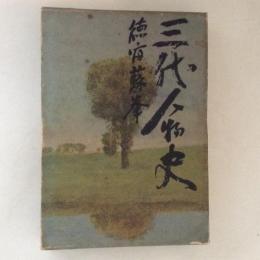 三代人物史
徳富蘇峰